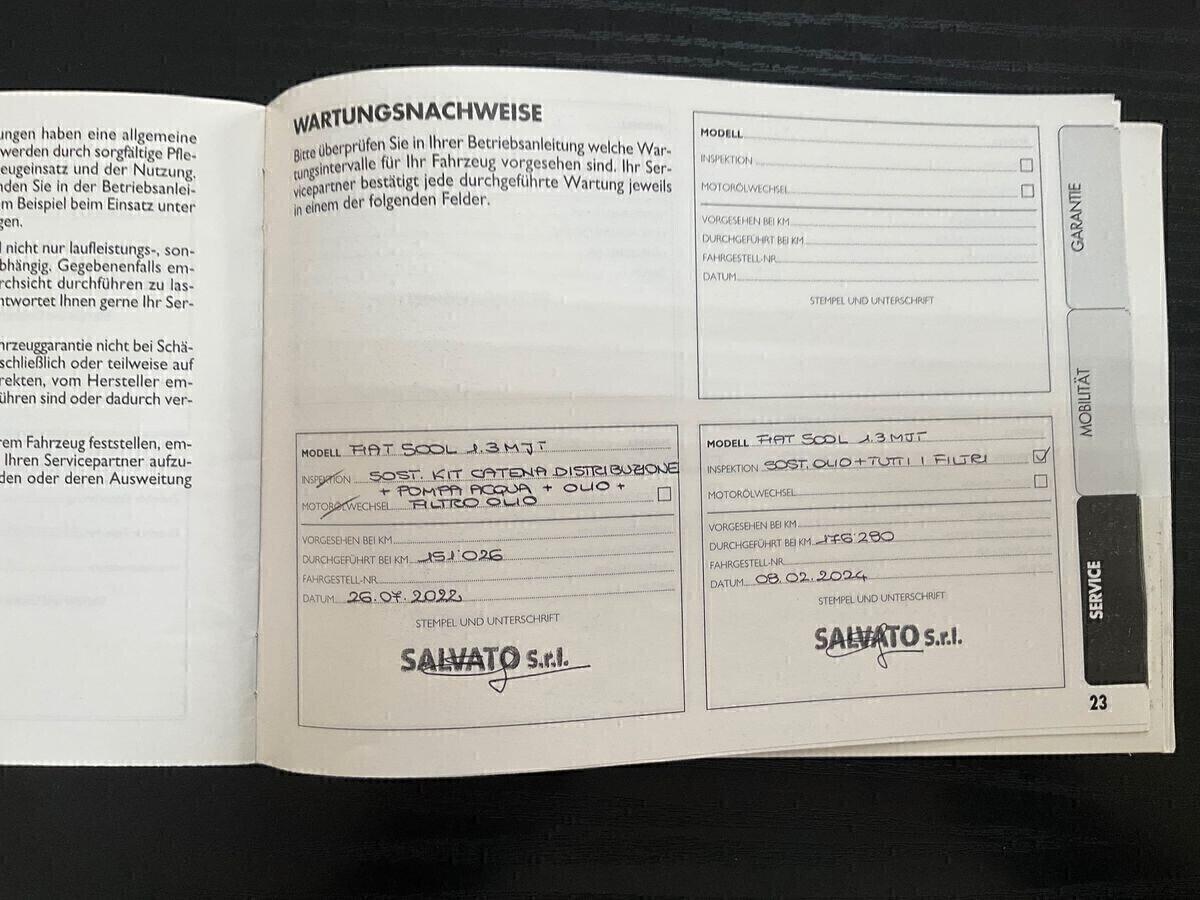 ungen haben eine allgemeine
werden durch sorgfältige Pfle-
eugeinsatz und der Nutzung.
nden Sie in der Betriebsanlei-
m Beispiel beim Einsatz unter
gen.
l nicht nur laufleistungs-, son-
bhängig. Gegebenenfalls em-
rchsicht durchführen zu las-
ntwortet Ihnen gerne Ihr Ser-
hrzeuggarantie nicht bei Schä-
schließlich oder teilweise auf
rekten, vom Hersteller em-
ühren sind oder dadurch ver-
rem Fahrzeug feststellen, em-
Ihren Servicepartner aufzu-
den oder deren Ausweitung
WARTUNGSNACHWEISE
Bitte überprüfen Sie in Ihrer Betriebsanleitung welche War-
tungsintervalle für Ihr Fahrzeug vorgesehen sind. Ihr Ser-
vicepartner bestätigt jede durchgeführte Wartung jeweils
in einem der folgenden Felder.
MODELL
INSPEKTION
MOTORÖLWECHSEL
VORGESEHEN BEI KM
DURCHGEFÜHRT BEI KM
FAHRGESTELL-NR.
DATUM
STEMPEL UND UNTERSCHRIFT
MODELL FIAT 500L 1.3 MJT
INSPEKTION SOST. KIT CATENA DISTRIBUZIONE
+ POMPA ACQUA + OLIO +
MOTORÖLWECHSEL FILTRO OLIO
VORGESEHEN BEI KM
DURCHGEFÜHRT BEI KM 151.026
FAHRGESTELL-NR.
DATUM 26.07.2022
STEMPEL UND UNTERSCHRIFT
SALVATO S.r.l.
MODELL FIAT 500L 1.3 MJT
INSPEKTION SOST. OLIO + TUTTI I FILTRI
MOTORÖLWECHSEL
VORGESEHEN BEI KM
DURCHGEFÜHRT BEI KM 176280
FAHRGESTELL-NR.
DATUM 08.02.2024
STEMPEL UND UNTERSCHRIFT
SALVATO S.r.l.
GARANTIE
MOBILITÄT
SERVICE
23